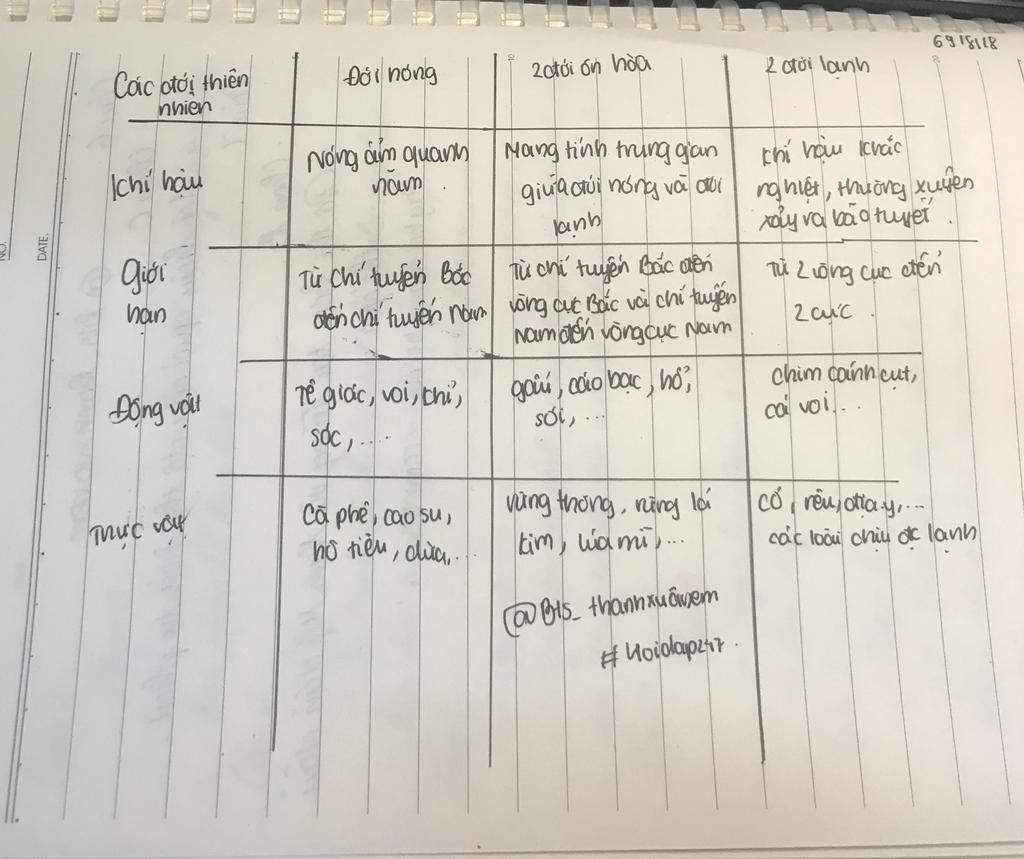 6918118
Các đới thiên nhiên
Đới nóng
2 đới ôn hòa
2 đới lạnh
Khí hậu
Nóng ẩm quanh năm.
Mang tính trung gian giữa đới nóng và đới lạnh
Khí hậu khắc nghiệt, thường xuyên xảy ra bão tuyết.
Giới hạn
Từ chí tuyến Bắc đến chí tuyến Nam
Từ chí tuyến Bắc đến vòng cực Bắc và chí tuyến Nam đến vòng cực Nam
Từ 2 vòng cực đến 2 cực.
Động vật
Tê giác, voi, khỉ, sóc,....
gấu, cáo bạc, hổ, sói,...
chim cánh cụt, cá voi...
Thực vật
Cà phê, cao su, hồ tiêu, dừa,...
rừng thông, rừng lá kim, lúa mì,...
cỏ, rêu, địa y,... các loài chịu đc lạnh
@Bts_thanhxuâuxem
#Hoidap247.
NO.
DATE.